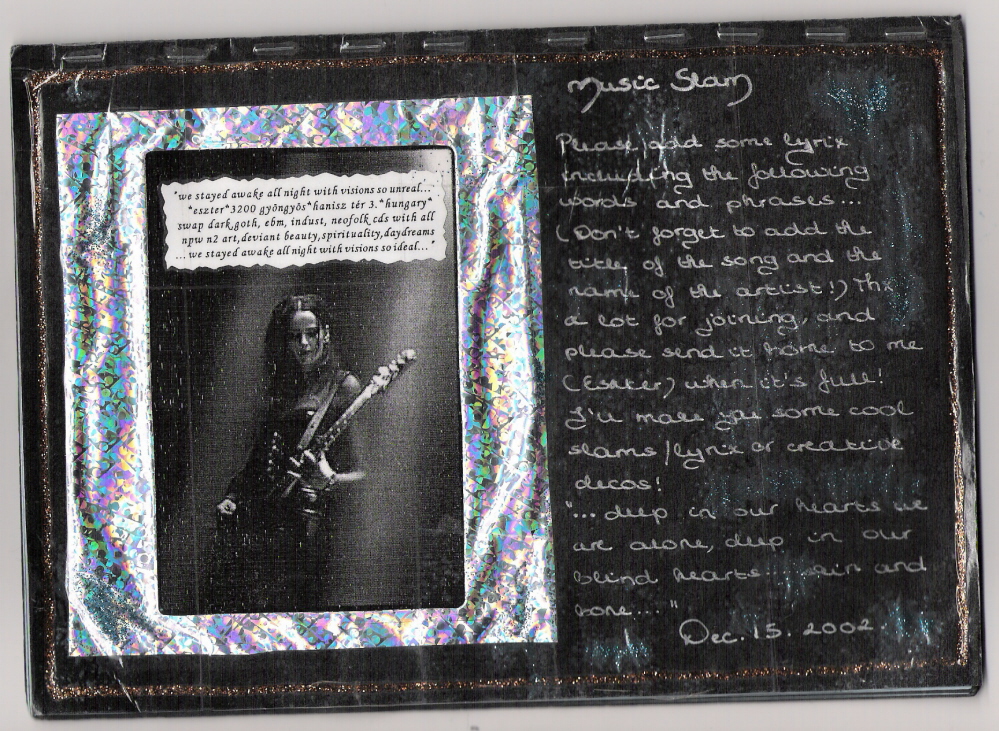 "we stayed awake all night with visions so unreal...
*eszter*3200 gyöngyös*hanisz tér 3.*hungary*
swap dark,goth, ebm, indust, neofolk cds with all
npw n2 art,deviant beauty,spirituality,daydreams
...we stayed awake all night with visions so ideal..."
Music Slam
Please add some lyrix
including the following
words and phrases...
(Don't forget to add the
title of the song and the
name of the artist!) Thx
a lot for joining, and
please send it home to me
(Eszter) when it's full!
I'll make you some cool
slams/lyrix or creative
decos!
"... deep in our hearts we
are alone, deep in our
blind hearts and
bone...."
Dec. 15. 2002